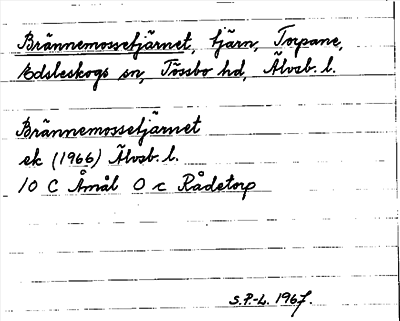 Brännemossetjärnet, tjärn, Torpane,
Edsleskogs sn, Tössbo hd, Älvsb. l.
Brännemossetjärnet
ek (1966) Älvsb. l.
10 C Åmål 0 c Rådetorp
S.P.-L. 1967.